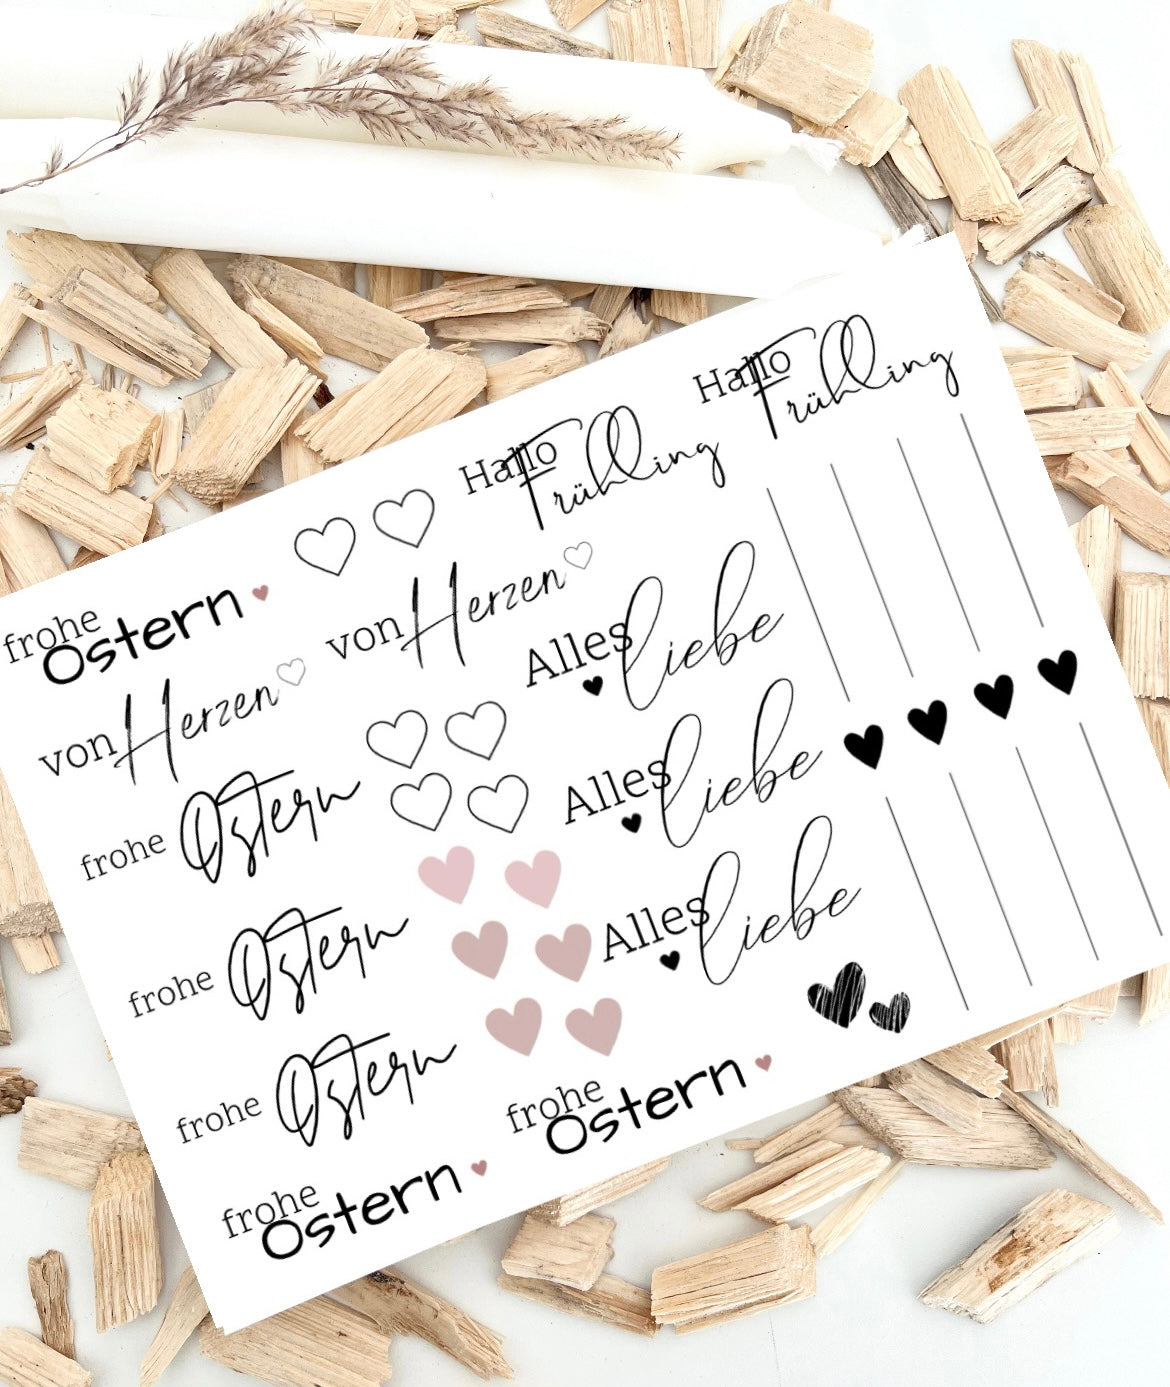 Hallo
Frühling
Hallo
Frühling
frohe
Ostern
von Herzen
von Herzen
Alles
liebe
frohe Ostern
Alles
liebe
frohe Ostern
Alles
liebe
frohe Ostern
frohe
Ostern
frohe
Ostern